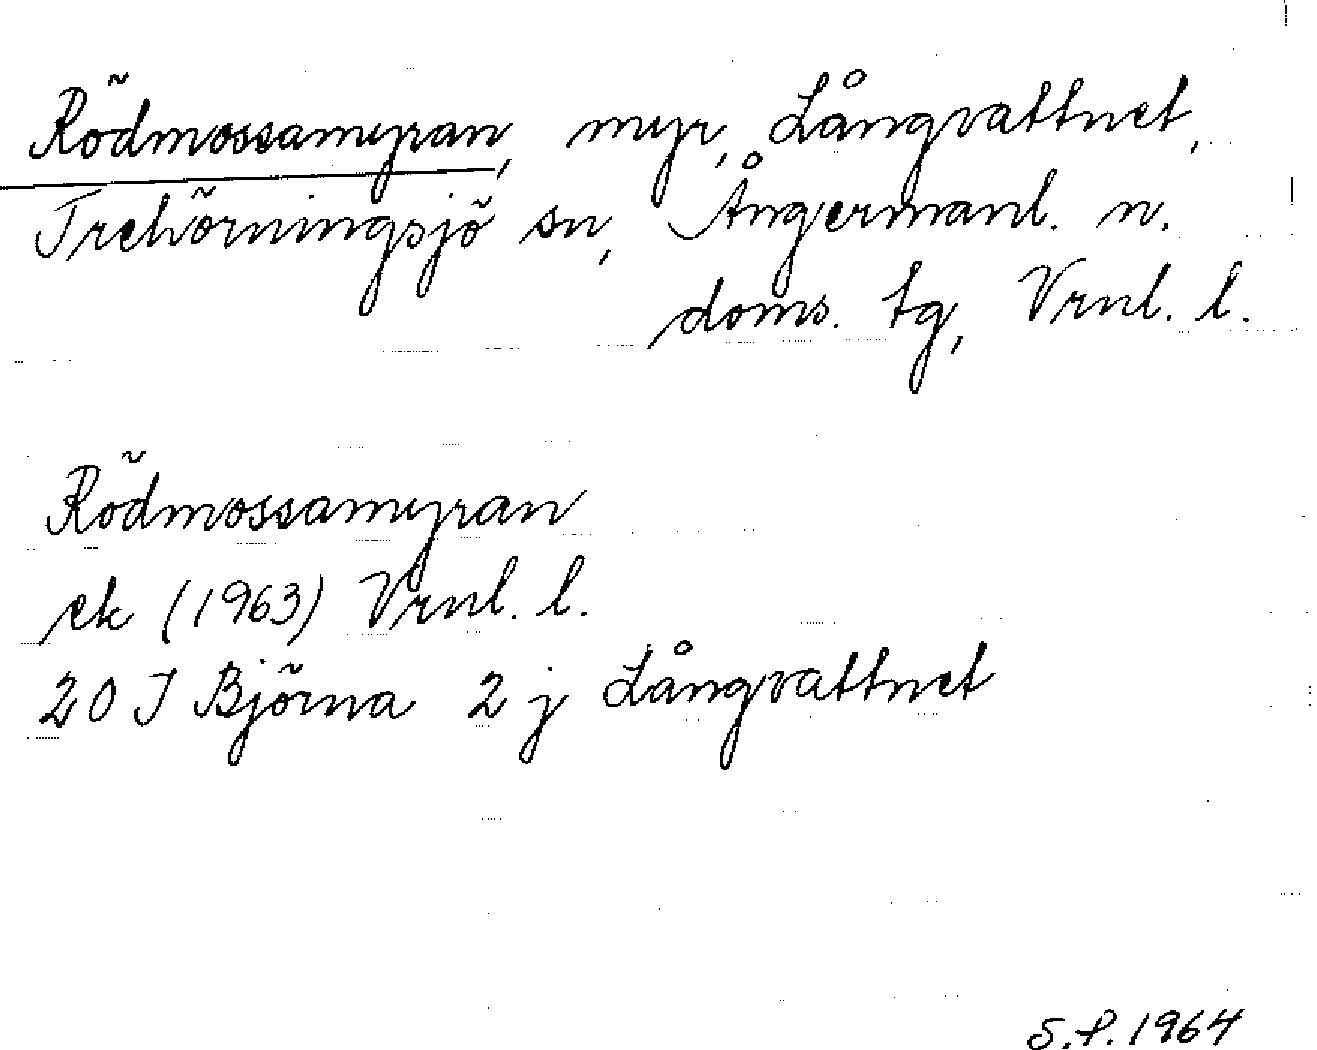 Rödmossamyran, myr, Långvattnet,
Trehörningsjö sn, Ångermanl. n.
doms. tg, Vrnl. l.
Rödmossamyran
ek (1963) Vrnl. l.
20 I Björna 2 j Långvattnet
S.P. 1964